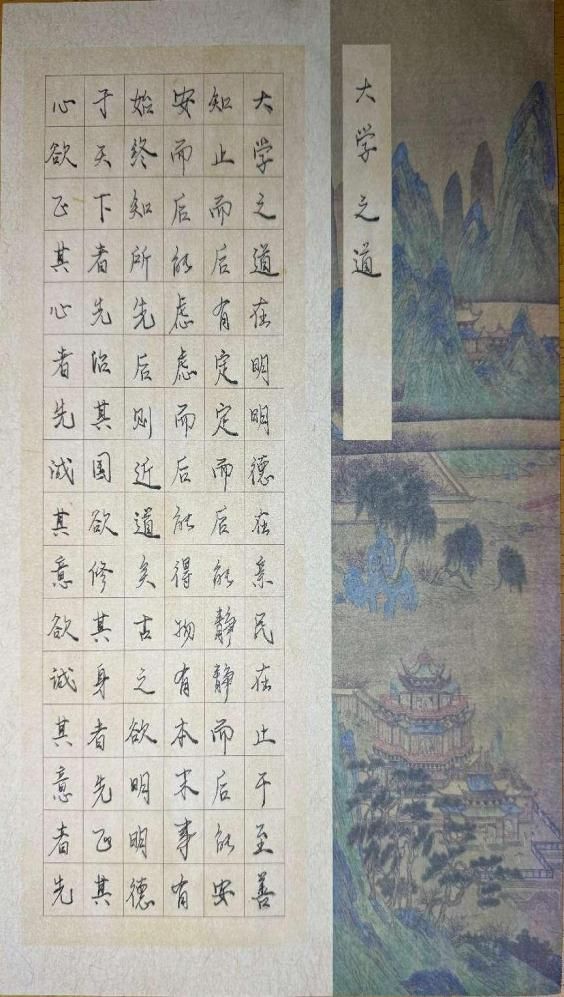 大学之道
大学之道在明明德在亲民在止于至善
知止而后有定定而后能静静而后能安
安而后能虑虑而后能得物有本末事有
始终知所先后则近道矣古之欲明明德
于天下者先治其国欲修其身者先正其
心欲正其心者先诚其意欲诚其意者先